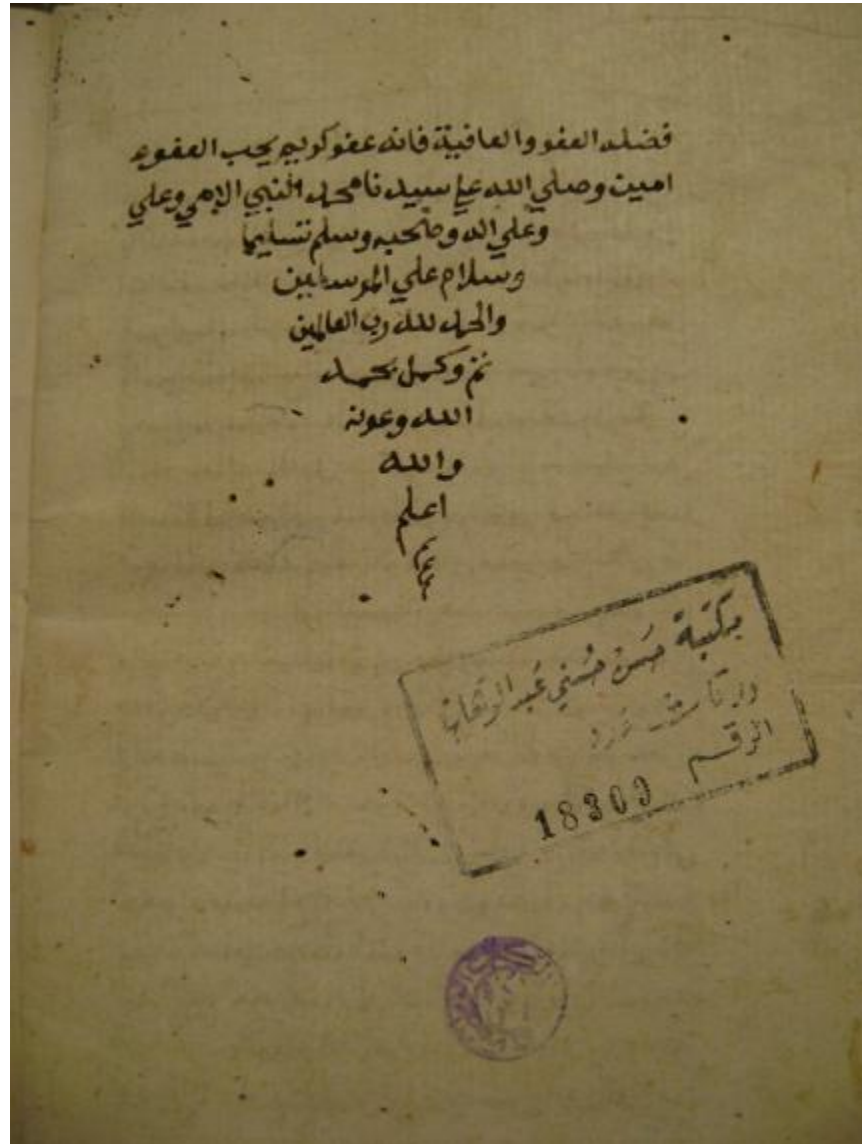 فضله العفو والعافية فانه عفو كريم يحب العفو
امين وصلي الله علي سيدنا محمد النبي الامي وعلي
وعلي اله وصحبه وسلم تسليما
وسلام علي المرسلين
والحمد لله رب العالمين
تم وكمل بحمد
الله وعونه
والله
اعلم
مكتبة حسن حسني عبد الوهاب
الرقم
18309